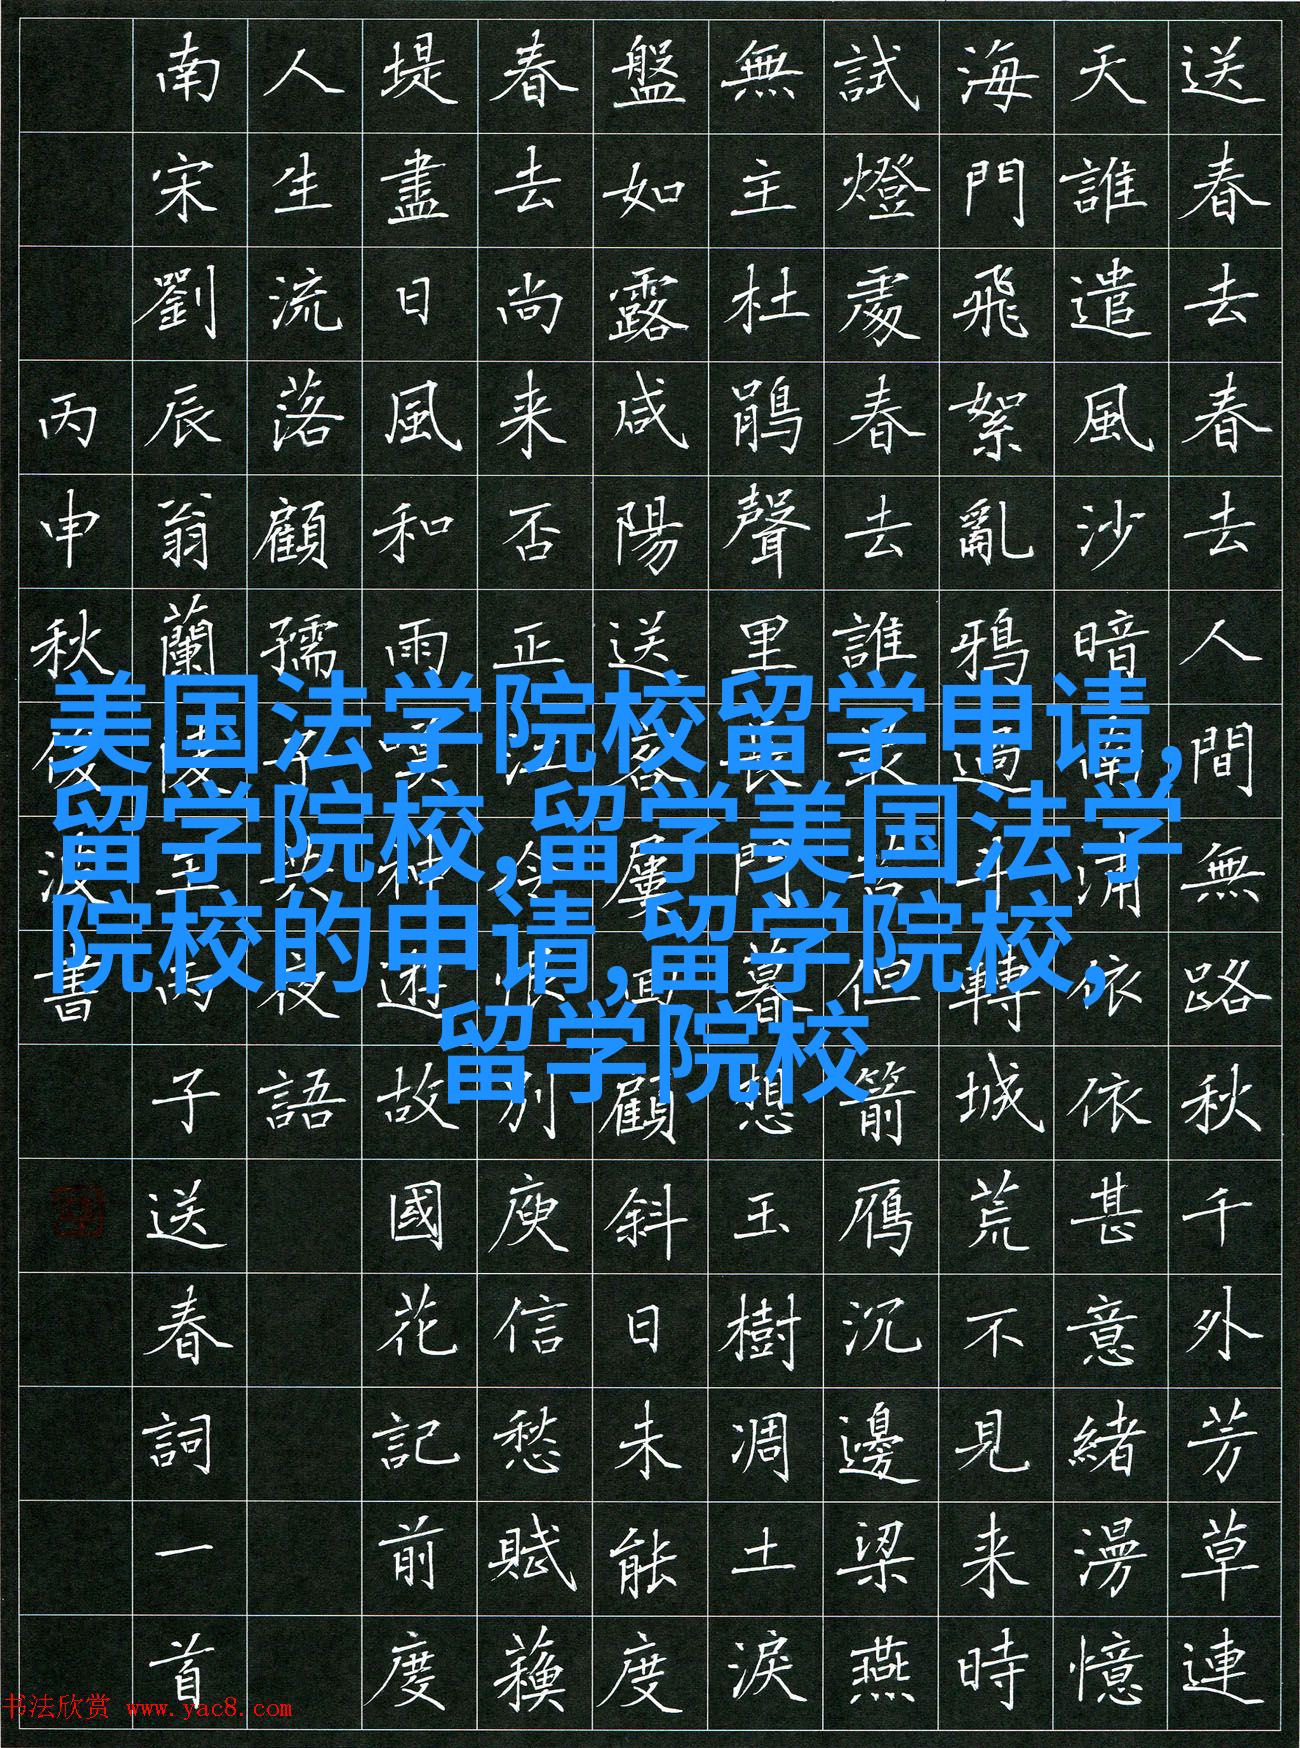 送春去春去人間無路秋千外芳草連
天誰遣風沙暗南浦依依甚意緒漫憶
海門飛絮亂鴉過斗轉城荒不見来時
試燈處春去誰最苦但箭鴈沉邊梁燕
無主杜鵑聲里長門暮想玉樹凋土淚
盤如露咸陽送客屢回顧斜日未能度
春去尚来否正江令恨别庾信愁賦蘓
堤盡日風和雨嘆神遊故國花記前度
人生流落顧孺子共夜語
南宋劉辰翁蘭陵王丙子送春詞一首
丙申秋俊波書
美国法学院校留学申请,
留学院校,留学美国法学
院校的申请,留学院校,
留学院校
书法欣赏 www.yac8.com